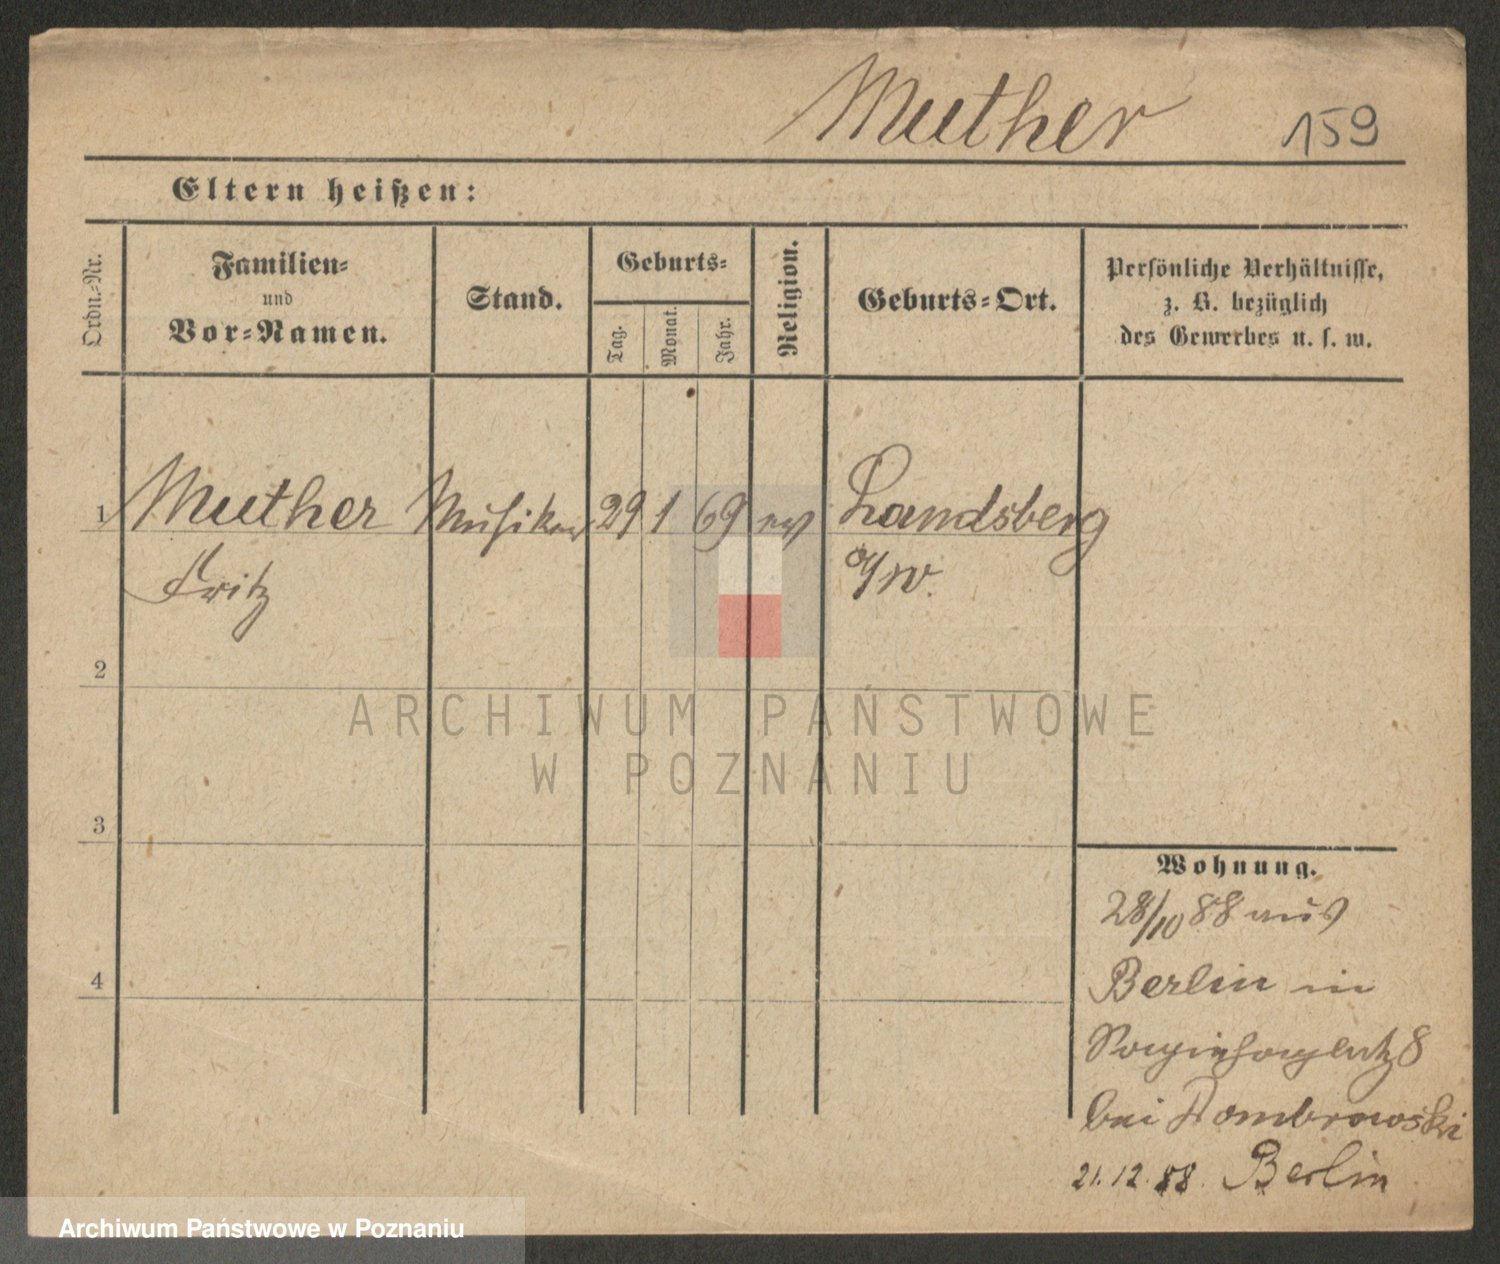 Muther 159
Eltern heißen:
Ordn.-Nr.
Familien-
und
Vor-Namen.
Stand.
Geburts-
Tag.
Monat.
Jahr.
Religion.
Geburts-Ort.
Persönliche Verhältnisse,
z. B. bezüglich
des Gewerbes u. s. w.
1 Muther Musiker 29 1 69 ev Landsberg
Fritz a/W.
2
3
4
Wohnung.
28/10 88 aus
Berlin in
8
bei Dombrowski
21.12.88. Berlin
ARCHIWUM PAŃSTWOWE
W POZNANIU
Archiwum Państwowe w Poznaniu